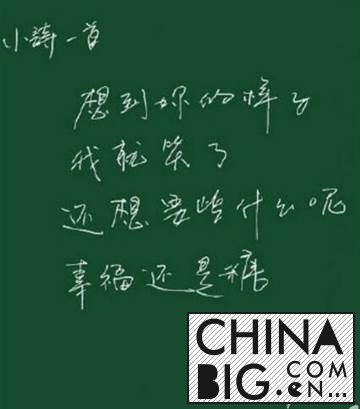 小詩一首
想到你的样子
我就笑了
还想要些什么呢
幸福还是糖
CHINA
BIG.COM
.en...